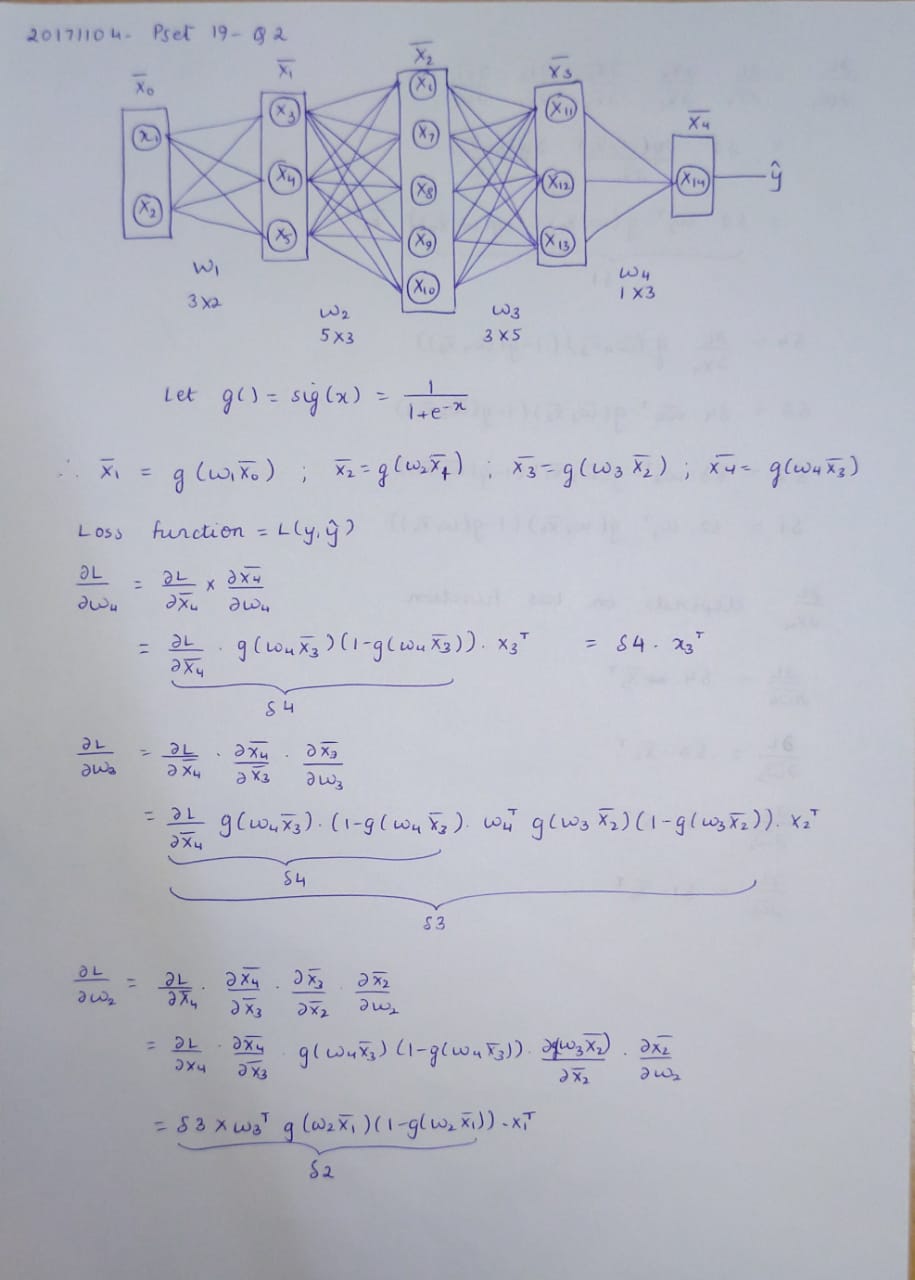 20171104. Pset 19 - Q2
x̄₀ x̄₁ x̄₂ x̄₃ x̄₄
x₁ x₂
x₃ x₄ x₅
x₇ x₈ x₉ x₁₀
x₁₁ x₁₂ x₁₃
x₁₄ ŷ
W₁ ω₂ ω₃ ω₄
3x2 5x3 3x5 1x3
Let g() = sig(x) = 1/(1+e^-x)
∴ x̄₁ = g(ω₁x̄₀) ; x̄₂ = g(ω₂x̄₁) ; x̄₃ = g(ω₃ x̄₂) ; x̄₄ = g(ω₄x̄₃)
Loss function = L(y,ŷ)
∂L/∂ω₄ = ∂L/∂x̄₄ × ∂x̄₄/∂ω₄
= ∂L/∂x̄₄ · g(ω₄x̄₃)(1-g(ω₄x̄₃)). x₃ᵀ = δ4. x₃ᵀ
δ4
∂L/∂ω₃ = ∂L/∂x̄₄ · ∂x̄₄/∂x̄₃ · ∂x̄₃/∂ω₃
= ∂L/∂x̄₄ g(ω₄x̄₃). (1-g(ω₄ x̄₃). ω₄ᵀ g(ω₃ x̄₂)(1-g(ω₃x̄₂)). x₂ᵀ
δ4
δ3
∂L/∂ω₂ = ∂L/∂x̄₄ . ∂x̄₄/∂x̄₃ . ∂x̄₃/∂x̄₂ . ∂x̄₂/∂ω₂
= ∂L/∂x₄ · ∂x̄₄/∂x̄₃ · g(ω₄x̄₃)(1-g(ω₄x̄₃)). ∂g(ω₃x̄₂)/∂x̄₂ . ∂x̄₂/∂ω₂
= δ3 × ω₃ᵀ g(ω₂x̄₁)(1-g(ω₂x̄₁)).x₁ᵀ
δ2